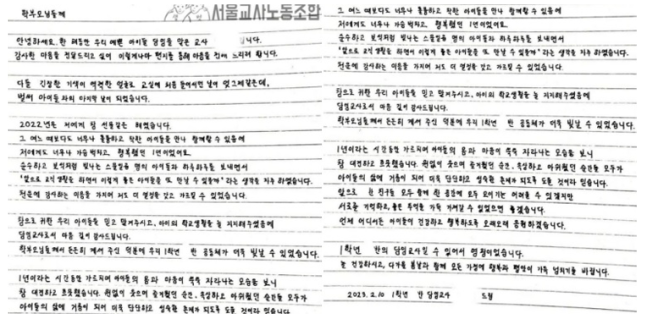 학부모님들께
서울교사노동조합
안녕하세요. 한 해동안 우리 예쁜 아이들 담임을 맡은 교사 입니다.
감사한 마음을 전달드리고 싶어 이렇게나마 편지를 통해 마음을 전해 드리려 합니다.
다들 긴장한 기색이 역력한 얼굴로 교실에 처음 들어서던 날이 엊그제같은데,
벌써 아이들과의 마지막 날이 되었습니다.
2022년은 저에게 참 선물같은 해였습니다.
그 어느 때보다도 너무나 훌륭하고 착한 아이들을 만나 함께할 수 있음에
저에게도 너무나 가슴벅차고 행복했던 1년이었어요.
순수하고 보석처럼 빛나는 스물여섯 명의 아이들과 하루하루를 보내면서
"앞으로 교직 생활을 하면서 이렇게 좋은 아이들을 또 만날 수 있을까"라는 생각을 자주 하였습니다.
천운에 감사하는 마음을 가지며 저도 더 열정을 갖고 가르칠 수 있었습니다.
참으로 귀한 우리 아이들을 믿고 맡겨주시고, 아이의 학교생활을 늘 지지해주셨음에
담임교사로서 마음 깊이 감사드립니다.
학부모님들께서 든든히 계셔 주신 덕분에 우리 1학년 반 공동체가 더욱 빛날 수 있었습니다.
1년이라는 시간동안 가르치며 아이들의 몸과 마음이 쑥쑥 자라나는 모습을 보니
참 대견하고 흐뭇했습니다. 원없이 웃으며 즐거웠던 순간, 속상하고 아쉬웠던 순간들 모두가
아이들의 삶에 거름이 되어 더욱 단단하고 성숙한 존재가 되도록 도울 것이라 믿습니다.
그 어느 때보다도 너무나 훌륭하고 착한 아이들을 만나 함께할 수 있음에
저에게도 너무나 가슴벅차고 행복했던 1년이었어요.
순수하고 보석처럼 빛나는 스물여섯 명의 아이들과 하루하루를 보내면서
"앞으로 교직 생활을 하면서 이렇게 좋은 아이들을 또 만날 수 있을까"라는 생각을 자주 하였습니다.
천운에 감사하는 마음을 가지며 저도 더 열정을 갖고 가르칠 수 있었습니다.
참으로 귀한 우리 아이들을 믿고 맡겨주시고, 아이의 학교생활을 늘 지지해주셨음에
담임교사로서 마음 깊이 감사드립니다.
학부모님들께서 든든히 계셔 주신 덕분에 우리 1학년 반 공동체가 더욱 빛날 수 있었습니다.
1년이라는 시간동안 가르치며 아이들의 몸과 마음이 쑥쑥 자라나는 모습을 보니
참 대견하고 흐뭇했습니다. 원없이 웃으며 즐거웠던 순간, 속상하고 아쉬웠던 순간들 모두가
아이들의 삶에 거름이 되어 더욱 단단하고 성숙한 존재가 되도록 도울 것이라 믿습니다.
앞으로 한 친구들 모두 함께 한 공간에 모두 모이기는 어려울 수 있겠지만
서로를 기억하고, 좋은 추억을 가득 가져갈 수 있었으면 좋겠습니다.
언제 어디서든 아이들이 건강하고 행복하도록 오래도록 응원하겠습니다.
1학년 반의 담임교사일 수 있어서 영광이었습니다.
늘 건강하시고, 다가올 봄날과 함께 모든 가정에 행복과 평안이 가득 넘치기를 바랍니다.
2023. 2. 10 1학년 반 담임교사 드림